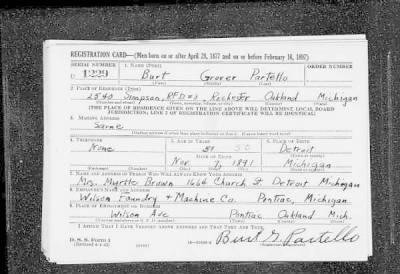 REGISTRATION CARD—(Men born on or after April 28, 1877 and on or before February 16, 1897)
SERIAL NUMBER
1. NAME (Print)
ORDER NUMBER
U 1229
Burt Grover Partello
(First) (Middle) (Last)
2. PLACE OF RESIDENCE (Print)
2540 Simpson, RFD#3 Rochester Oakland Michigan
(Number and street) (Town, township, village, or city) (County) (State)
[THE PLACE OF RESIDENCE GIVEN ON THE LINE ABOVE WILL DETERMINE LOCAL BOARD
JURISDICTION; LINE 2 OF REGISTRATION CERTIFICATE WILL BE IDENTICAL]
3. MAILING ADDRESS
Same
(Mailing address if other than place indicated on line 2. If same insert word same)
4. TELEPHONE
5. AGE IN YEARS
6. PLACE OF BIRTH
None
50
Detroit
DATE OF BIRTH
(Town or county)
Nov. 7, 1891
Michigan
(Exchange) (Number)
(Mo.) (Day) (Yr.)
(State or country)
7. NAME AND ADDRESS OF PERSON WHO WILL ALWAYS KNOW YOUR ADDRESS
Mrs. Myrtle Brown 1664 Church St. Detroit Michigan
8. EMPLOYER'S NAME AND ADDRESS
Wilson Foundry & Machine Co. Pontiac, Michigan
9. PLACE OF EMPLOYMENT OR BUSINESS
Wilson Ave Pontiac Oakland Mich.
(Number and street or R. F. D. number) (Town) (County) (State)
I AFFIRM THAT I HAVE VERIFIED ABOVE ANSWERS AND THAT THEY ARE TRUE.
D. S. S. Form 1
(Revised 4-1-42)
(over)
Burt G. Partello
(Registrant's signature)